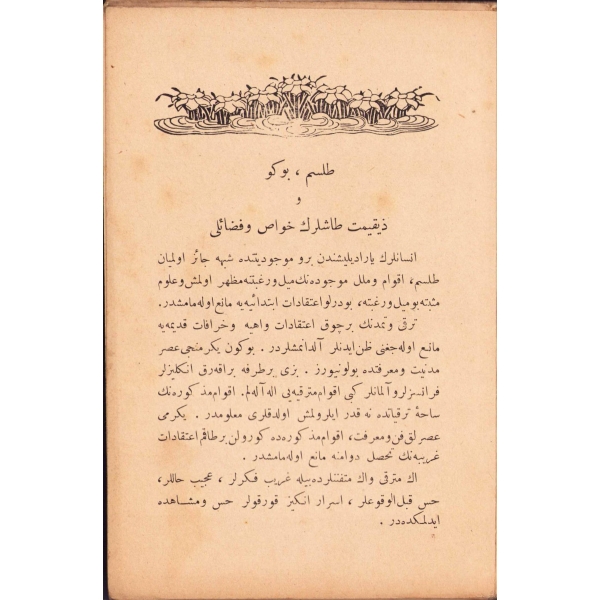 طلسم ، بوكو
و
ذيقيمت طاشلرك خواص وفضائلى
انسانلرك ياراديليشندن برو موجوديتنده شبهه جائز اولميان
طلسم، اقوام وملل موجوده‌نك ميل ورغبتنه مظهر اولمش وعلوم
مثبته بو ميل ورغبته، بو درلو اعتقادات ابتدائيه‌يه مانع اوله‌مامشدر.
ترقى وتمدنك بر چوق اعتقادات واهيه وخرافات قديمه‌يه
مانع اوله‌جغنى ظن ايدنلر آلدانمشلردر . بوكون يكرمنجى عصر
مدنيت ومعرفتده بولونيورز . بزى بر طرفه براقه‌رق انكليزلر
فرانسزلر و آلمانلر كبى اقوام مترقيه‌يى اله آله‌لم. اقوام مذكوره‌نك
ساحهٔ ترقياتده نه قدر ايلرولمش اولدقلرى معلومدر. يكرمى
عصرلق فن ومعرفت، اقوام مذكوره‌ده كورولن بر طاقم اعتقادات
غريبه‌نك تحصل دوامنه مانع اوله‌مامشدر.
اك مترقى واك متفننلرده بيله غريب فكرلر ، عجيب حاللر،
حس قبل الوقوعلر ، اسرار انكيز قورقولر حس ومشاهده
ايدلمكده‌در .